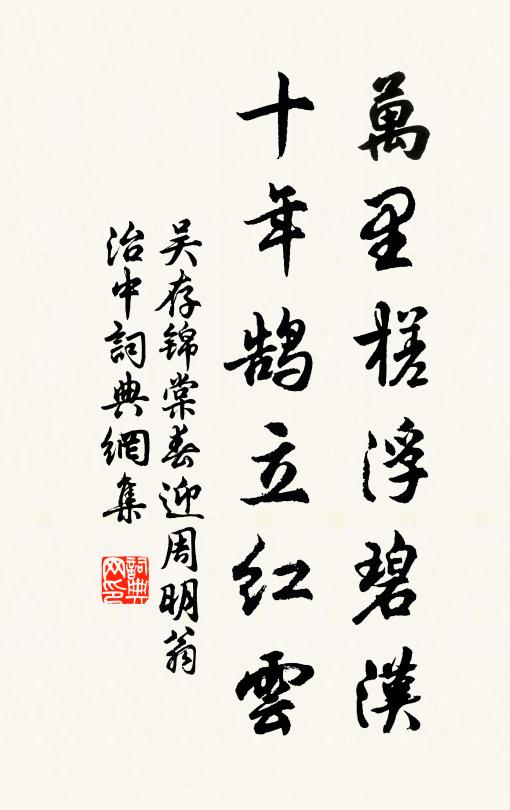 萬里槎浮碧漢
十年鹄立红雲
吴存锦棠春迎周明翁
治中詞典網集
詞典
网印